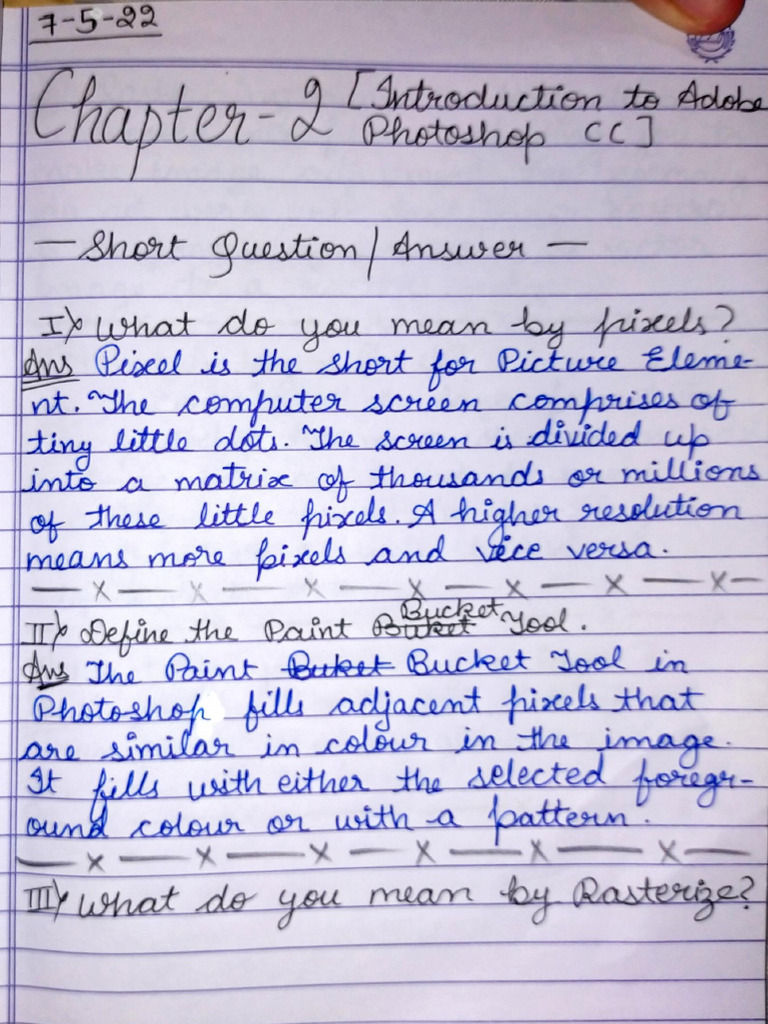 7-5-22
Chapter-2 [Introduction to Adobe
Photoshop CC]
— Short Question/Answer —
I) What do you mean by pixels?
Ans Pixel is the short for Picture Eleme-
nt. The computer screen comprises of
tiny little dots. The screen is divided up
into a matrix of thousands or millions
of these little pixels. A higher resolution
means more pixels and vice versa.
— x — x — x — x — x — x — x —
II) Define the Paint Buket Bucket Tool.
Ans The Paint Buket Bucket Tool in
Photoshop fills adjacent pixels that
are similar in colour in the image.
It fills with either the selected foregr-
ound colour or with a pattern.
— x — x — x — x — x — x —
III) What do you mean by Rasterize?